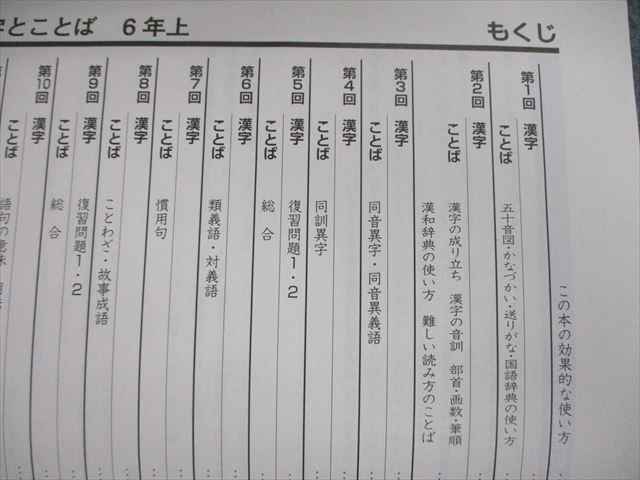 字とことば　６年上
もくじ
この本の効果的な使い方
第1回　漢字
ことば　五十音図・かなづかい・送りがな・国語辞典の使い方
第2回　漢字
ことば　漢字の成り立ち　漢字の音訓　部首・画数・筆順
漢和辞典の使い方　難しい読み方のことば
第3回　漢字
ことば　同音異字・同音異義語
第4回　漢字
ことば　同訓異字
第5回　漢字　復習問題1・2
ことば　総合
第6回　漢字
ことば　類義語・対義語
第7回　漢字
ことば　慣用句
第8回　漢字
ことば　ことわざ・故事成語
第9回　漢字　復習問題1・2
ことば　総合
第10回　漢字
ことば　語句の意味